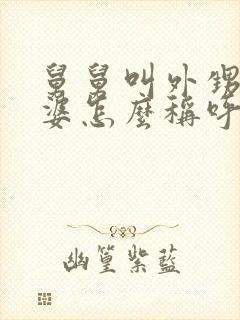 舅舅叫外甥
婆怎麼稱呼
幽篁紫藍